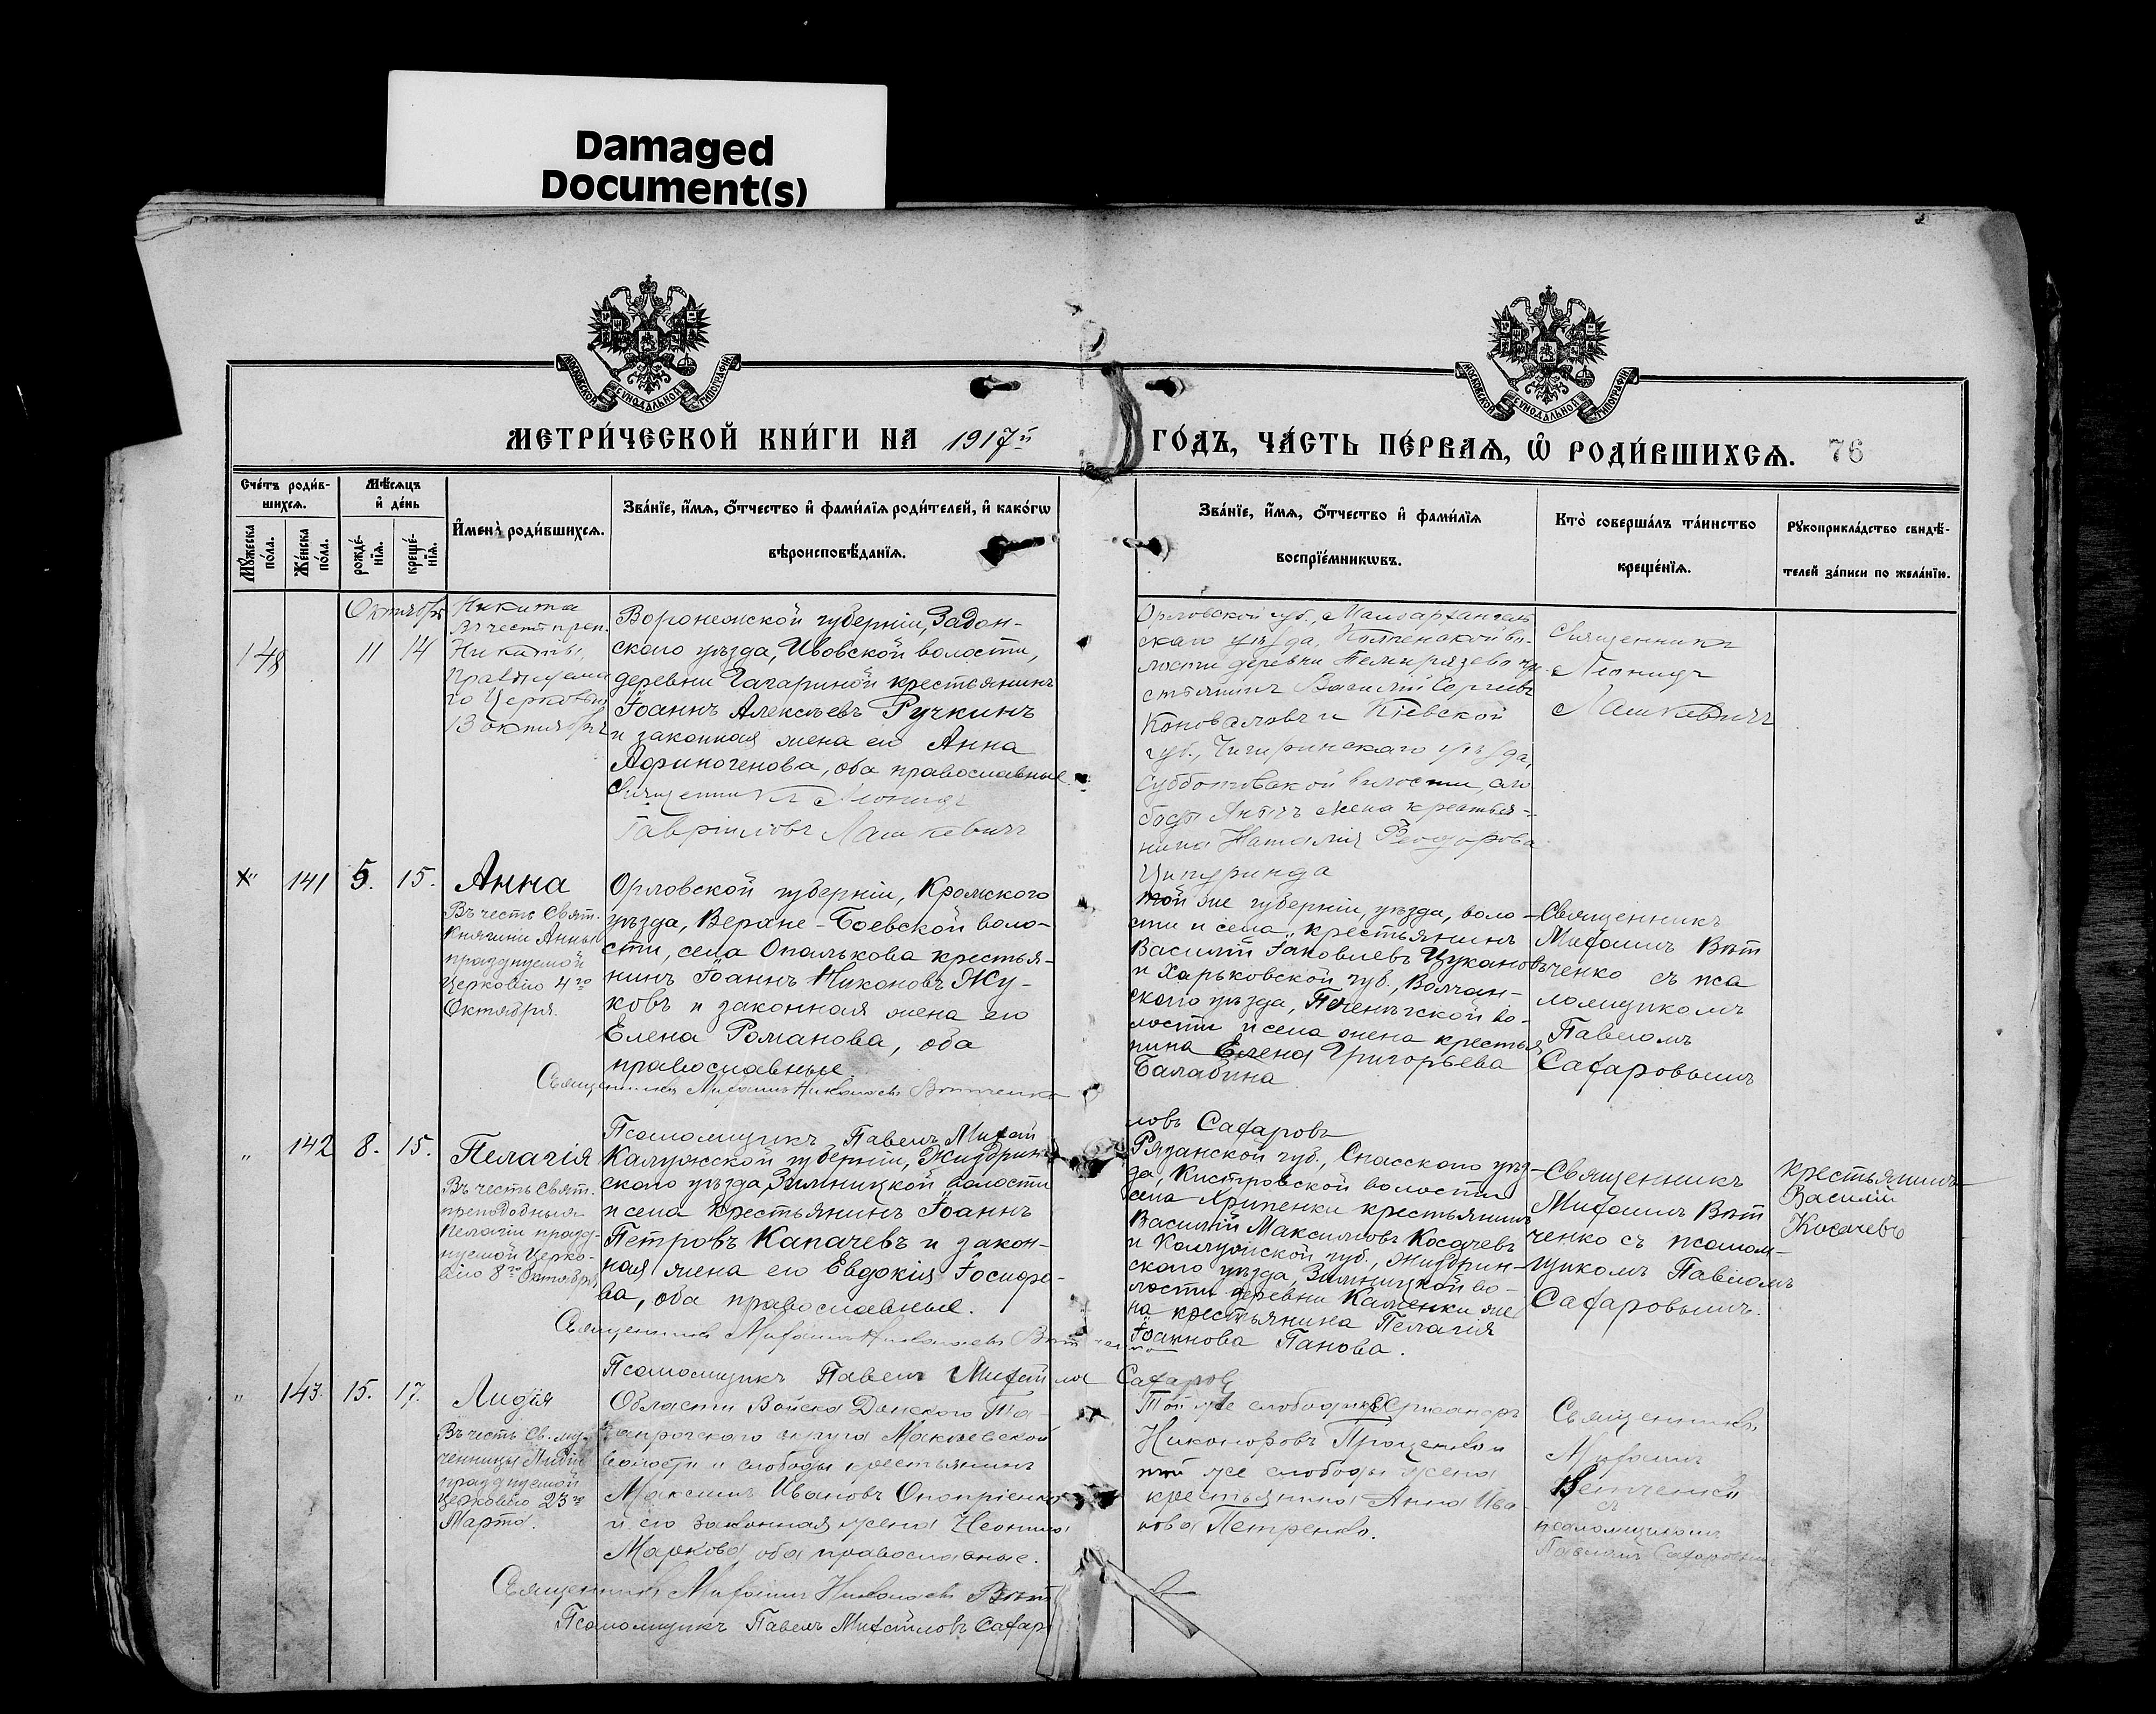 Damaged
Document(s)
МОСКОВСКОЙ СѴНОДАЛЬНОЙ ТИПОГРАФІИ
МОСКОВСКОЙ СѴНОДАЛЬНОЙ ТИПОГРАФІИ
МЕТРИ́ЧЕСКОЙ КНИ́ГИ НА 1917й ГО́ДЪ, ЧА́СТЬ ПЕ́РВАѦ, Ѡ҆ РОДИ́ВШИХСѦ. 76
Сче́тъ роди́в-
шихсѧ.
Мꙋ́жеска по́ла.
Же́нска по́ла.
Мѣ́сѧцъ
и҆ де́нь
рожде́-
нїѧ.
креще́-
нїѧ.
И҆мена̀ роди́вшихсѧ.
Зва́нїе, и҆́мѧ, ѻ҆́тчество и҆ фами́лїѧ роди́телей, и҆ како́гѡ
вѣроисповѣ́данїѧ.
Зва́нїе, и҆́мѧ, ѻ҆́тчество и҆ фами́лїѧ
воспрїе́мникѡвъ.
Кто̀ соверша́лъ та́инство
креще́нїѧ.
Рꙋкоприкла́дство свидѣ́-
телей за́писи по жела́нїю.
Октября
148
11 14
Никита
Въ честь преп.
Никиты,
13 октября
Воронежской губерніи, Задон-
скаго уѣзда, Ивовской волости,
деревни Гагариной крестьянинъ
Іоаннъ Алексѣевъ Ручкинъ
и законная жена его Анна
Афиногенова, оба православные
Священникъ Леонидъ
Гавріиловъ Лашкевичъ
Орловской губ., Малоархангель
скаго уѣзда,
лости деревни
стьянинъ Василій Сергѣевъ
Коноваловъ и Кіевской
губ., Чигиринскаго уѣзда,
Субботовской волости, сло
боды жена крестья-
нина Наталія Ѳеодорова
Ципуринда
Священникъ
Леонидъ
Лашкевичъ
" 141 5. 15.
Анна
Въ честь Свят.
Княгини Анны
празднуемой
Церковію 4го
Октября.
Орловской губерніи, Кромского
уѣзда, Верхне-Боевской воло-
сти, села Опалькова крестья-
нинъ Іоаннъ Никоновъ Жу-
ковъ и законная жена его
Елена Романова, оба
православные.
Священникъ Михаилъ Николаевъ Вѣтченко
Псаломщикъ Павелъ Михай
ловъ Сахаровъ
Той же губерніи, уѣзда, воло-
сти и села, крестьянинъ
Василій Іаковлевъ Цукановъ
и Харьковской губ., Волчан-
скаго уѣзда, Печенѣгской во-
лости и села жена крестья
нина Елена Григорьева
Балабина
Священникъ
Михаилъ Вѣт
ченко съ пса
ломщикомъ
Павломъ
Сахаровымъ
" 142 8. 15.
Пелагія
Въ честь Свят.
преподобныя
Пелагіи празд-
нуемой Церко-
вію 8го Октября
Калужской губерніи, Жиздрин-
скаго уѣзда, Зимницкой волости
и села крестьянинъ Іоаннъ
Петровъ Капачевъ и закон-
ная жена его Евдокія Іосифо-
ва, оба православные.
Священникъ Михаилъ Николаевъ Вѣтченко
Псаломщикъ Павелъ Михайловъ Сахаровъ
Рязанской губ., Спасскаго уѣз-
да, Кистровской волости
села Хрипенки крестьянинъ
Василій Максимовъ Косачевъ
и Калужской губ., Жиздрин-
скаго уѣзда, Зимницкой во-
лости деревни Каменки же
на крестьянина Пелагія
Іоаннова Панова.
Священникъ
Михаилъ Вѣт
ченко съ псалом-
щикомъ Павломъ
Сахаровымъ.
крестьянинъ
Василій
Косачевъ
" 143. 15. 17.
Лидія
Въ честь Св. му-
ченницы Лидіи
празднуемой
Церковію 23го
Марта.
Области Войска Донскаго Та-
ганрогскаго округа Макѣевской
волости и слободы крестьянинъ
Максимъ Ивановъ Оноприенко
и его законная жена Неонила
Маркова, оба православные.
Священникъ Михаилъ Николаевъ Вѣт
Псаломщикъ Павелъ Михайловъ Сахар
Той же слободы
Никоноровъ Проценко и
той же слободы жена
крестьянина Анна Ива-
нова Петренко.
Священникъ
Михаилъ
Ветченко
съ
псаломщикомъ
Павломъ Сахаровымъ